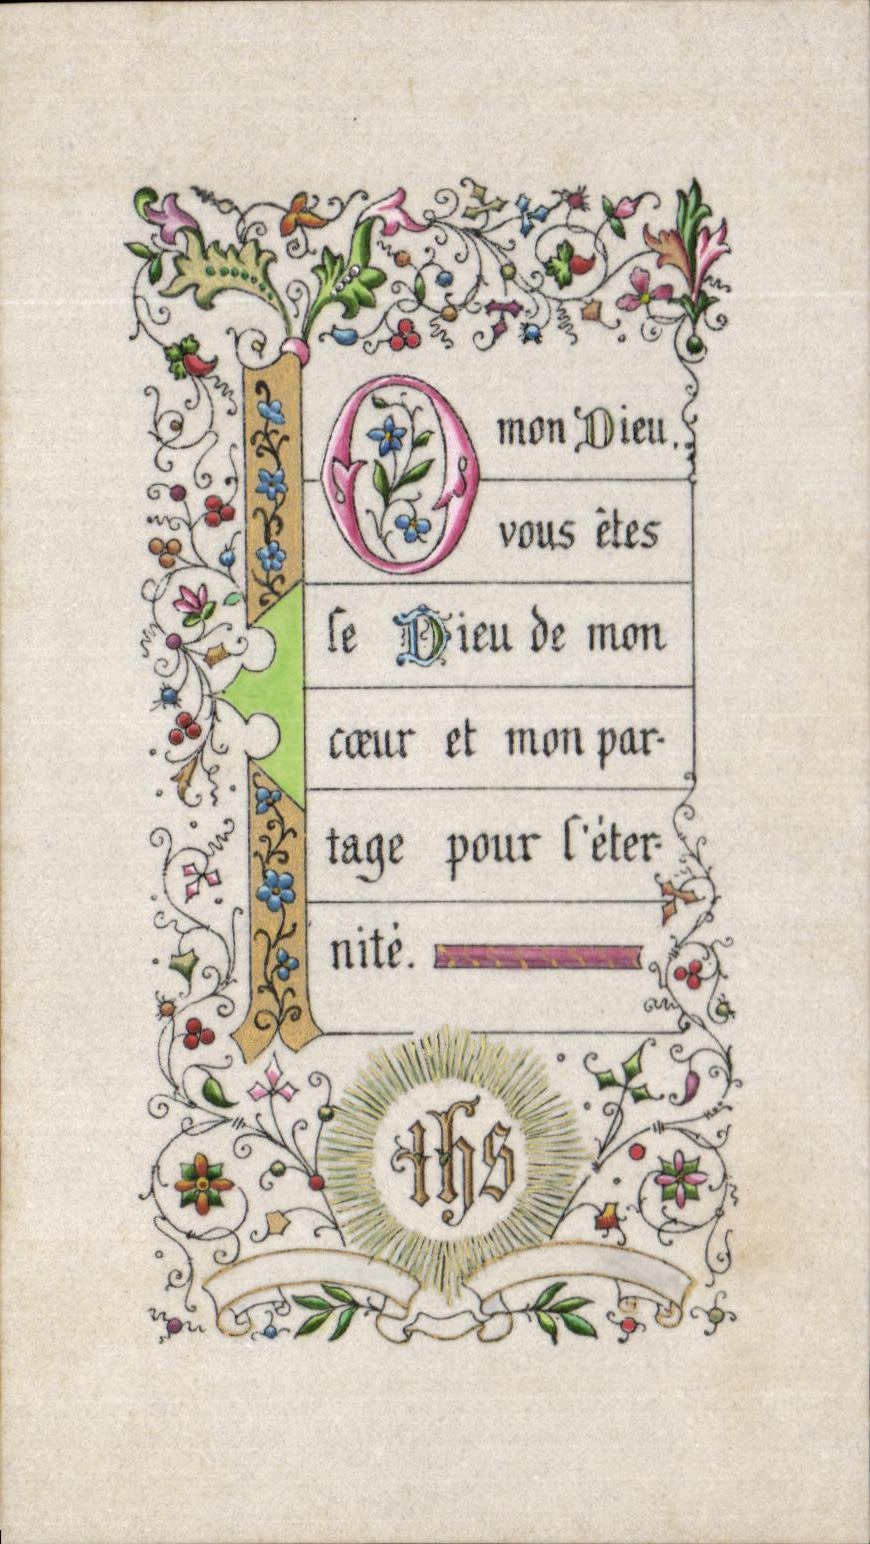 O mon Dieu.
vous êtes
le Dieu de mon
cœur et mon par-
tage pour l'éter-
nité.
ihs